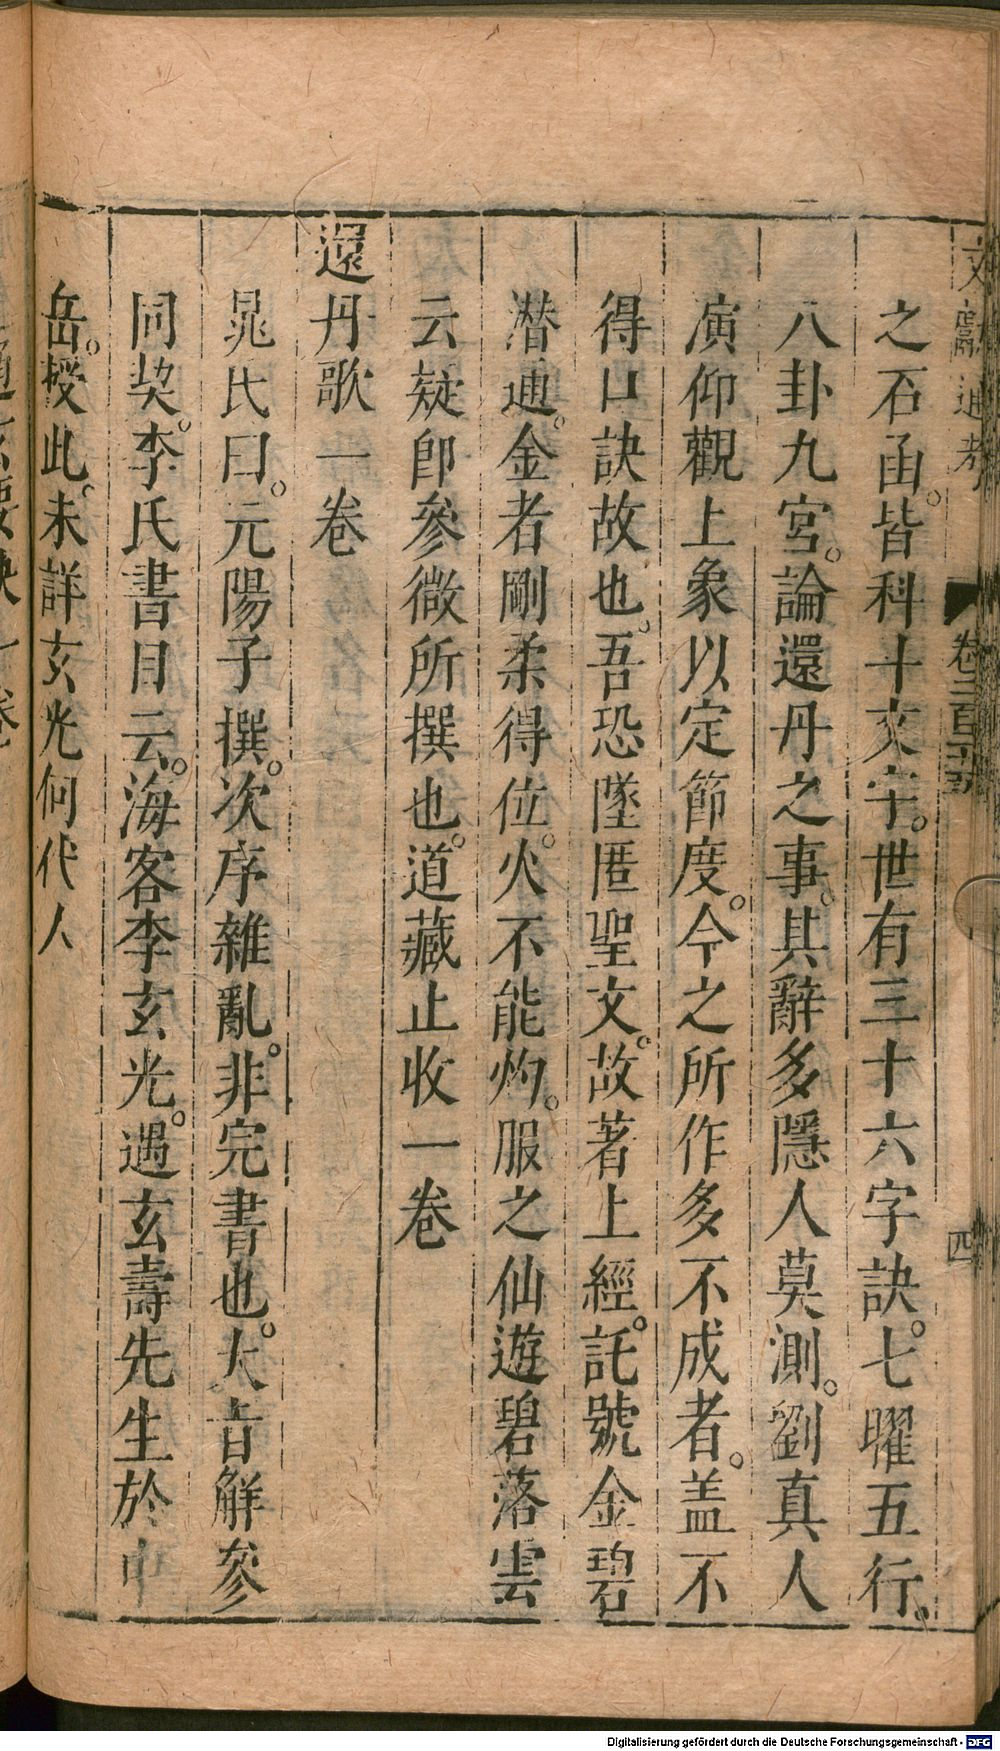 文獻通考 卷二百二十五 四
之石函。皆科斗文字。世有三十六字訣。七曜五行。
八卦九宮。論還丹之事。其辭多隱人莫測。劉真人
演仰觀上象以定節度。今之所作多不成者。盖不
得口訣故也。吾恐墜匿聖文。故著上經。託號金碧
潛通。金者剛柔得位。火不能灼。服之仙遊碧落雲
云疑即參微所撰也。道藏止收一卷
還丹歌一卷
晁氏曰。元陽子撰。次序雜亂。非完書也。大旨解參
同契。李氏書目云。海客李玄光。遇玄壽先生於中
岳。授此。未詳玄光何代人
Digitalisierung gefördert durch die Deutsche Forschungsgemeinschaft - DFG